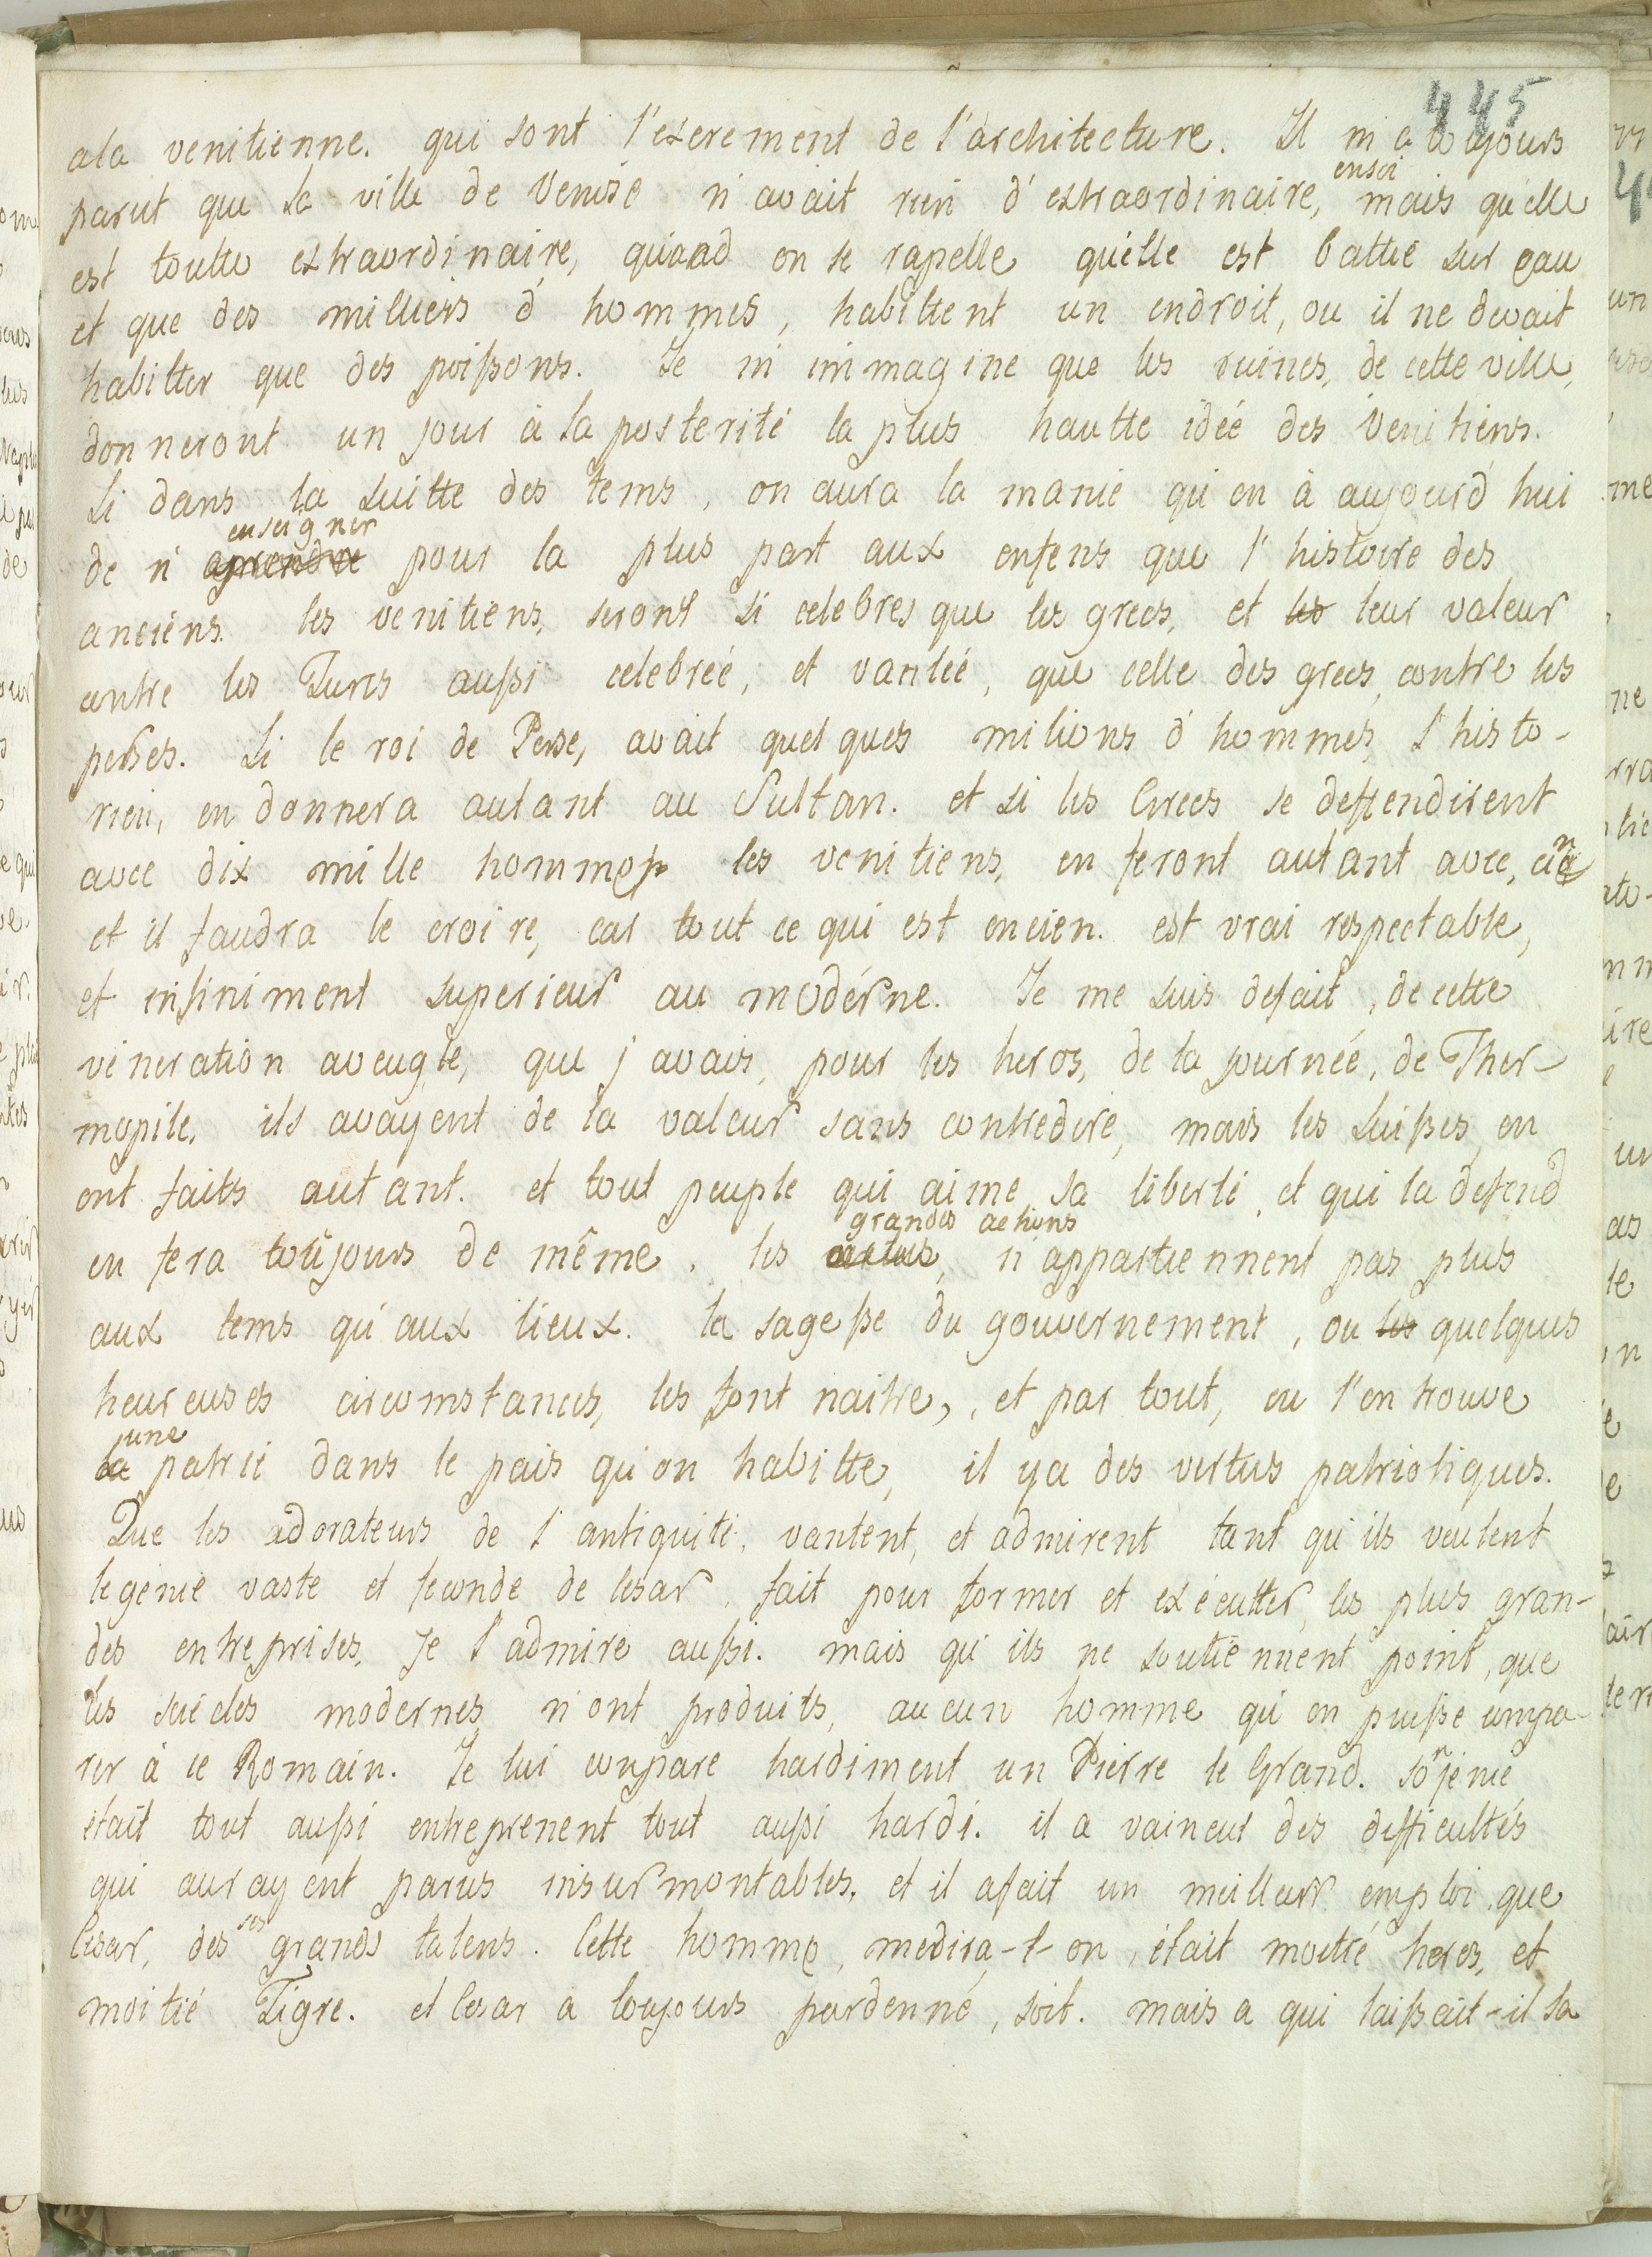 445
ala venitienne. qui sont l'excrement de l'architecture. Il m'a toujours
parut que la ville de Venise n'avait rien d'extraordinaire, ensoi mais qu'elle
est toutte extraordinaire, quand on se rapelle qu'elle est battie sur eau
et que des milliers d'hommes, habittent un endroit, ou il ne devait
habitter que des poissons. Je m'immagine que les ruines, de cette ville,
donneront un jour à la posterité la plus hautte idée des Venitiens.
Si dans la suitte des tems, on aura la manie qu'on à aujourd'hui
de n'aprendre enseigner pour la plus part aux enfens que l'histoire des
anciens. les venitiens, seront si celebres que les grecs, et les leur valeur
contre les Turcs aussi celebréé, et vantéé, que celle des grecs, contre les
perses. Si le roi de Perse, avait quelques milions d'hommes, l'histo-
rien, en donnera autant au Sultan. et si les Grecs se deffendirent
avec dix mille hommes les venitiens, en feront autant avec, cinq
et il faudra le croire, car tout ce qui est encien. est vrai respectable,
et infiniment superieur au modérne. Je me suis defait, de cette
vineration aveugle, que j'avais, pour les heros, de la journéé, de Ther-
mopile. ils avayent de la valeur sans contredire, mais les suisses, en
ont faits autant. et tout peuple qui aime sa liberté, et qui la defend
en fera toujours de même. les grandes actions, n'appartiennent pas plus
aux tems qu'aux lieux. la sagesse du gouvernement, ou les quelques
heureuses circomstances, les font naitre, et par tout, ou l'on trouve
une patrie dans le pais qu'on habitte, il ya des vertus patriotiques.
Que les adorateurs de l'antiquité, vantent, et admirent tant qu'ils veulent
le génie vaste et feconde de Cesar, fait pour former et exécutter, les plus gran-
des entreprises, je l'admire aussi. mais qu'ils ne soutiennent point, que
les siécles modernes n'ont produits, aucun homme qu'on puisse compa-
rer à ce Romain. Je lui compare hardiment un Pierre le Grand. son jénie
était tout aussi entreprenent tout aussi hardi. il a vaincut des difficultés
qui aurayent parus insurmontables, et il afait un meilleur emploi que
Cesar, des ses grands talens. Cette homme, medira-t-on, était moitié heros, et
moitié Tigre. et Cesar a toujours pardenné, soit. mais a qui laissait-il la